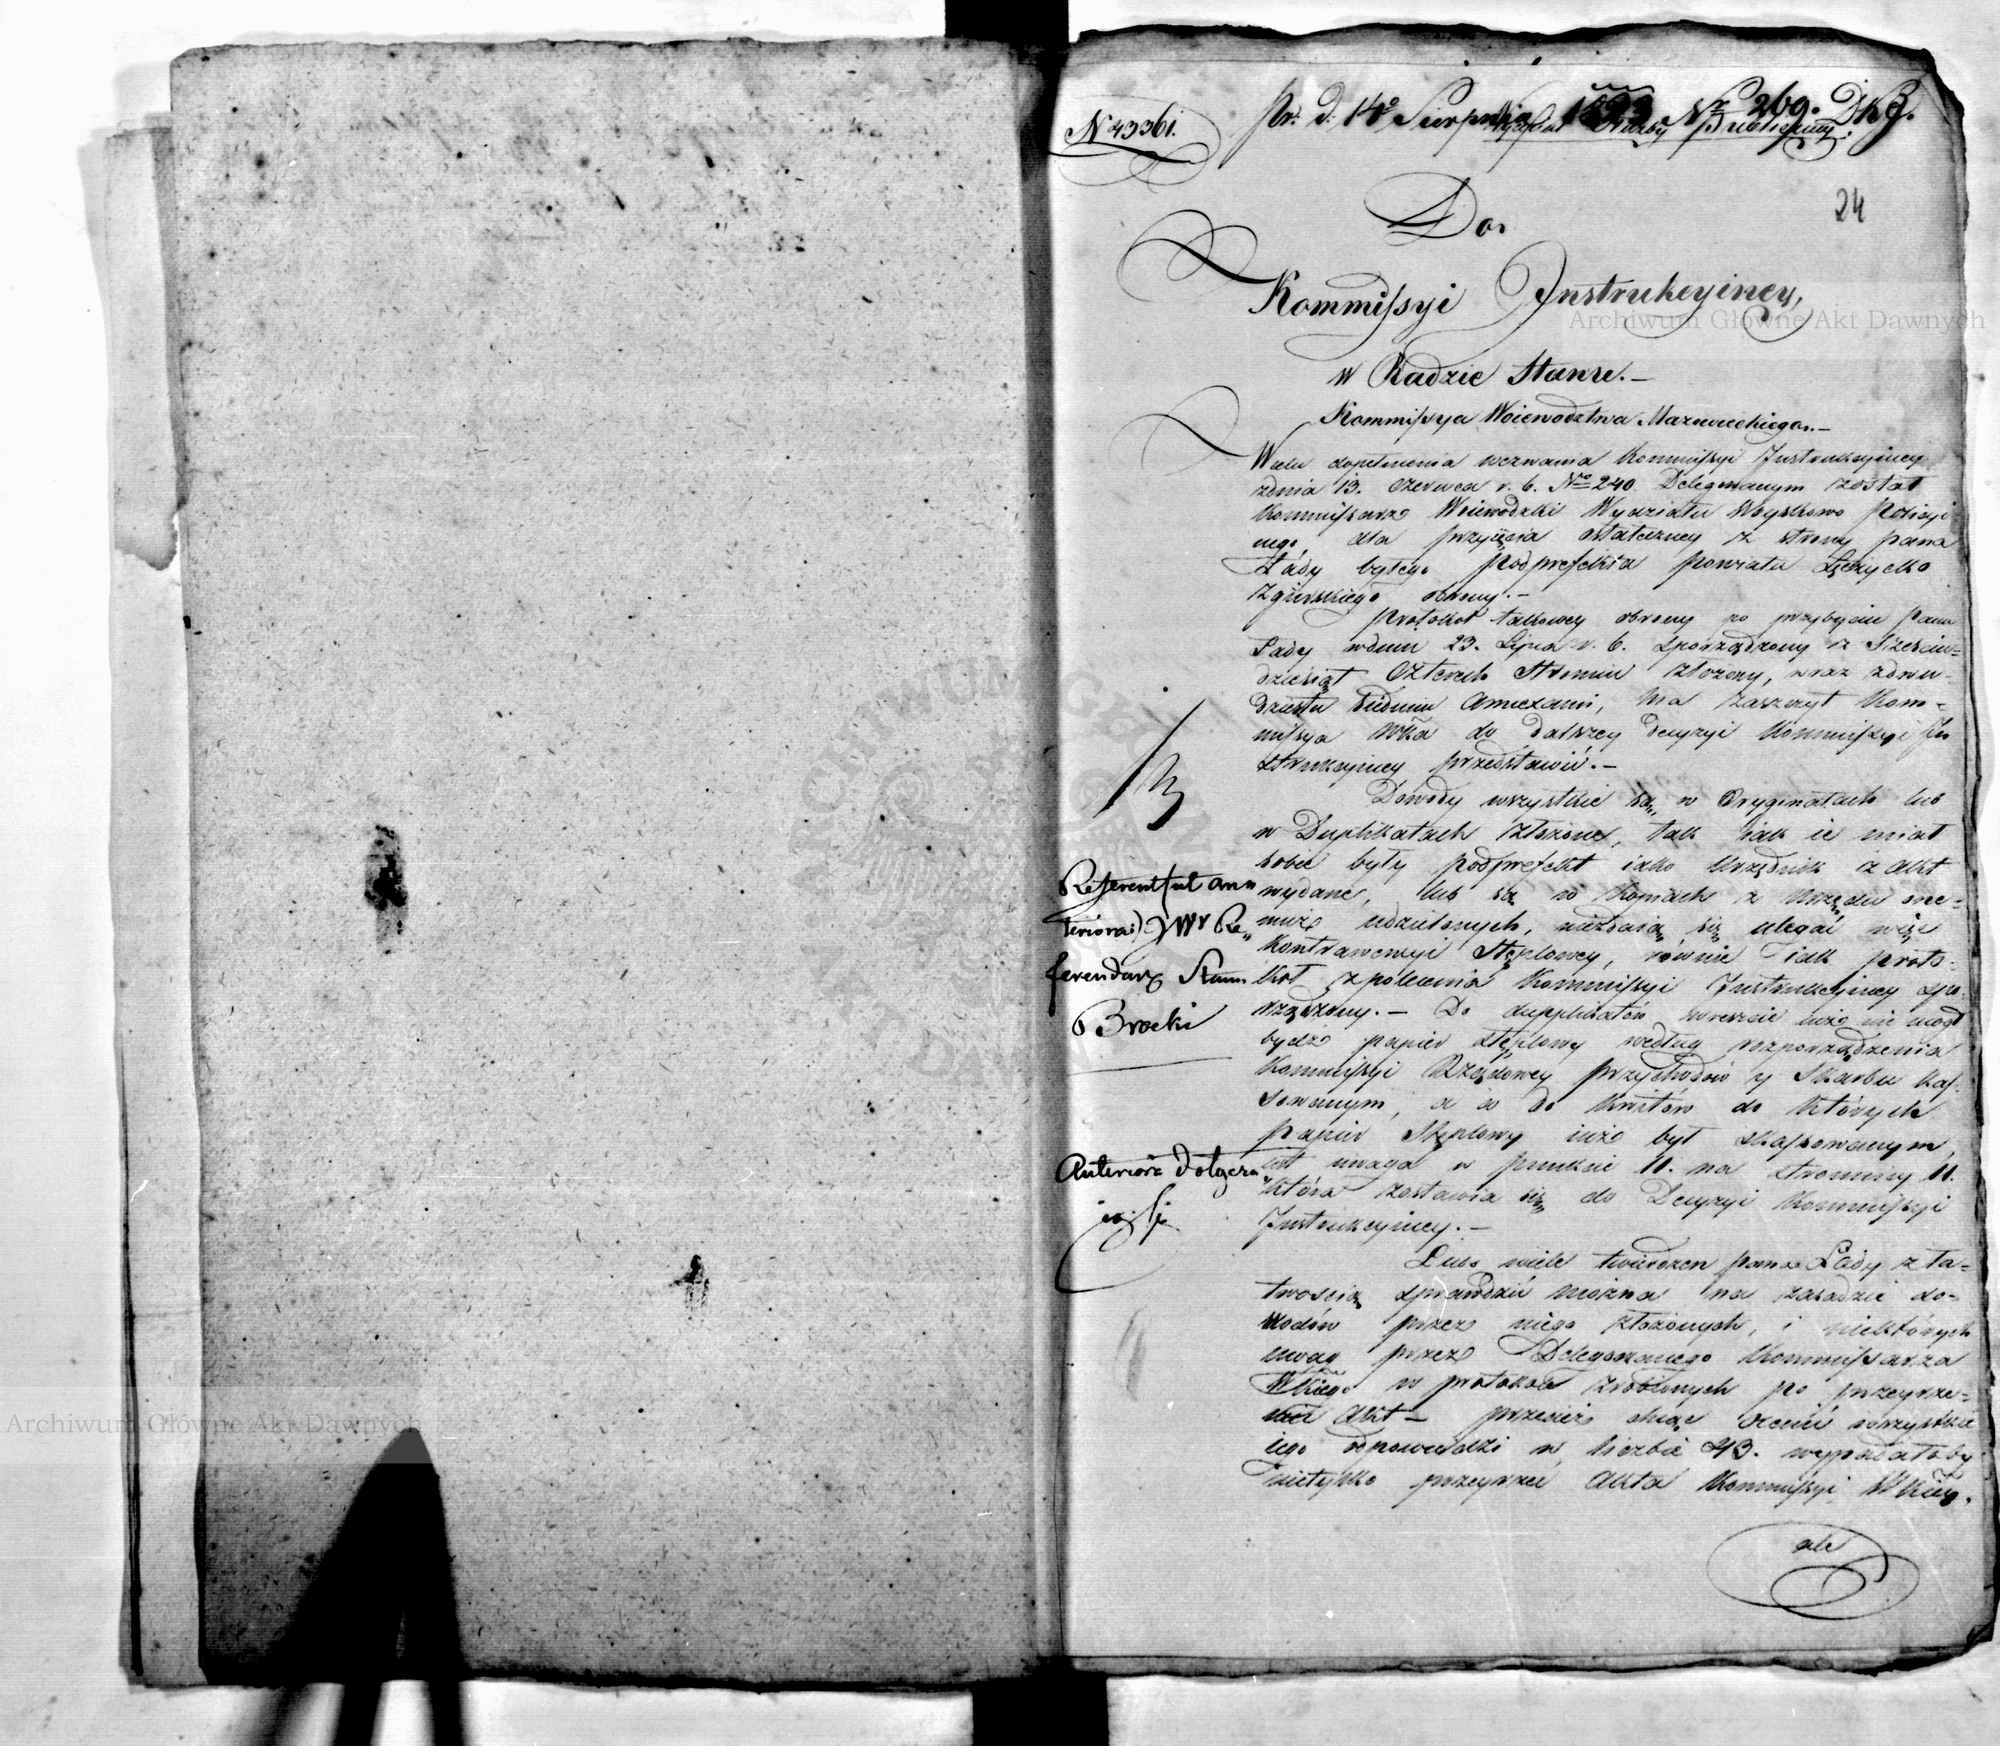 N 43361.
Pr. D. 14º Sierpnia 1823 Nr 269. DKJ.
24
Do.
Kommissyi Instrukcyiney,
w Radzie Stanu.—
Kommissya Woiewodztwa Mazowieckiego.—
W celu dopełnienia wezwania Kommissyi Instrukcyiney
zdnia 13. Czerwca r. b. Nro 240. Delegowanym został
Kommissarz Woiewodzki Wydziału Woyskowo Policyi
nego, dla przyięcia ostateczney z strony pana
Łády byłego Podprefekta Powiatu Łęczycko
Zgierskiego obrony.—
Protokół takowey obrony po przybyciu Pana
Łády wdniu 23. Lipca r. b. sporządzony z Sześciu-
dziesiąt Czterech Stronnic złożony, wraz zdwu-
dziestu siedmiu Annexami, ma zaszczyt Kom-
missya Wka do dalszey decyzyi Kommissyi In
strukcyiney przedstawić.—
Dowody wszystkie są, w Oryginałach lub
w Duplikatach złożone, tak iak ie miał
sobie były podprefekt iako Urzędnik z Akt
wydane, lub są w kopiach z Urzędu one-
muż udzielonych, niezdaią się ulegać więc
Kontrawencyi Stęplowey, równie iak proto-
kół z polecenia Kommissyi Instrukcyiney spo-
rządzony.— Do dupplikatów wreszcie iuż nie mógł
bydź papier stęplowy według rozporządzenia
Kommissyi Rządowey Przychodów y Skarbu kas-
sowanym, a co do kwitów do których
papier Stęplowy iuż był skassowanym,
iest uwaga w punkcie 11. na stronnicy 11.
która zostawia się do Decyzyi Kommissyi
Instrukcyiney.—
Lubo wiele twierdzeń pana Łády z ła-
twością sprawdzić można na zasadzie do-
wodów przez niego złożonych, i niektórych
uwag przez Delegowanego Kommissarza
Wkiego w protokole zrobionych po przeyrze-
niu Akt — przecież chcąc ocenić wszystkie
iego odpowiedzi w liczbie 43. wypadałoby
nietylko przeyrzeć Akta Kommissyi Wkiey.
ale
Referent (ut an-
teriora:) JWr Re-
ferendarz Stanu
Brocki
Anteriora dołącza